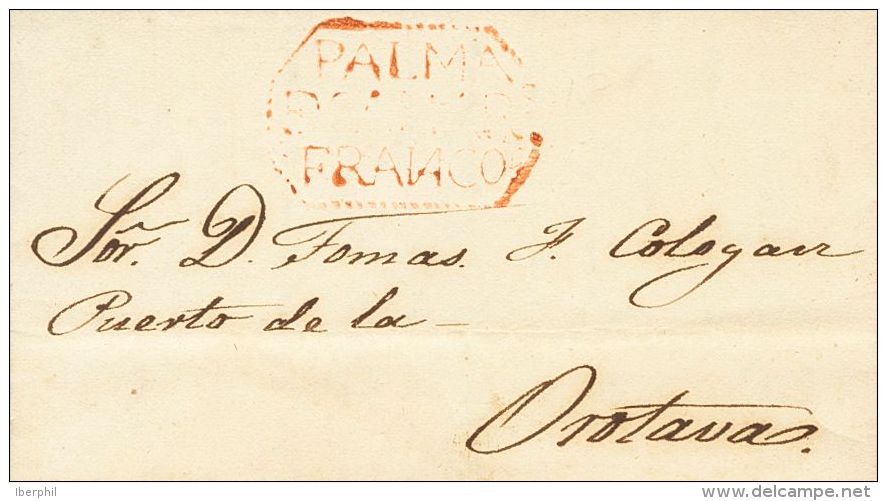 PALMA
FRANCO
Sor. D. Tomas. F. Cologan
Puerto de la —
Orotava.
Iberphil
delcampe.net